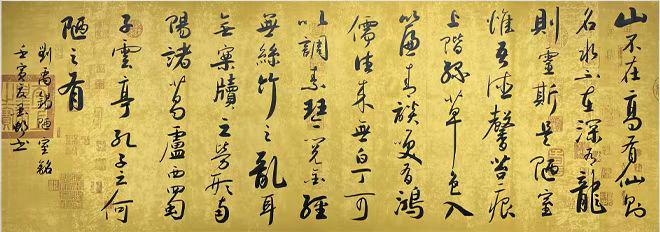 山不在高有仙則
名水不在深有龍
則靈斯是陋室
惟吾德馨苔痕
上階緑草色入
簾青談笑有鴻
儒往來無白丁可
以調素琴閱金經
無絲竹之亂耳
無案牘之勞形南
陽諸葛廬西蜀
子雲亭孔子云何
陋之有
劉禹錫陋室銘
壬寅 书